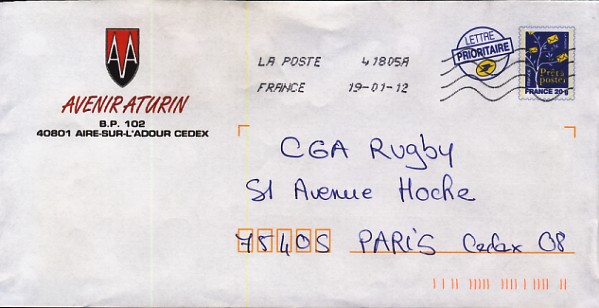 AA
AVENIR ATURIN
B.P. 102
40801 AIRE-SUR-L'ADOUR CEDEX
LA POSTE 41805A
FRANCE 19-01-12
LETTRE
PRIORITAIRE
Prêt à
poster
FRANCE 20 g
CGA Rugby
51 Avenue Hoche
75405 PARIS Cedex 08